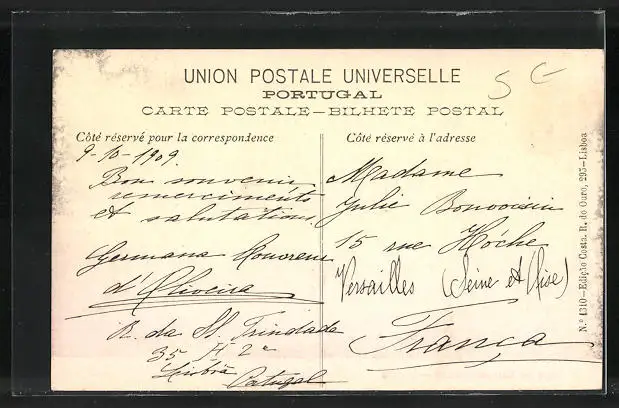 UNION POSTALE UNIVERSELLE
PORTUGAL
CARTE POSTALE—BILHETE POSTAL
Côté réservé pour la correspondence
9-10-1909.
Bon souvenir
remerciments
et salutations
Germana
d'Oliveira
R. da SS. Trindade
35 H 2º
Lisboa
Portugal
Côté réservé à l'adresse
Madame
Julie Bonvoisin
15 rue Hóche
Versailles (Seine et Oise)
França
N.º 1310—Edição Costa. R. do Ouro, 295—Lisboa